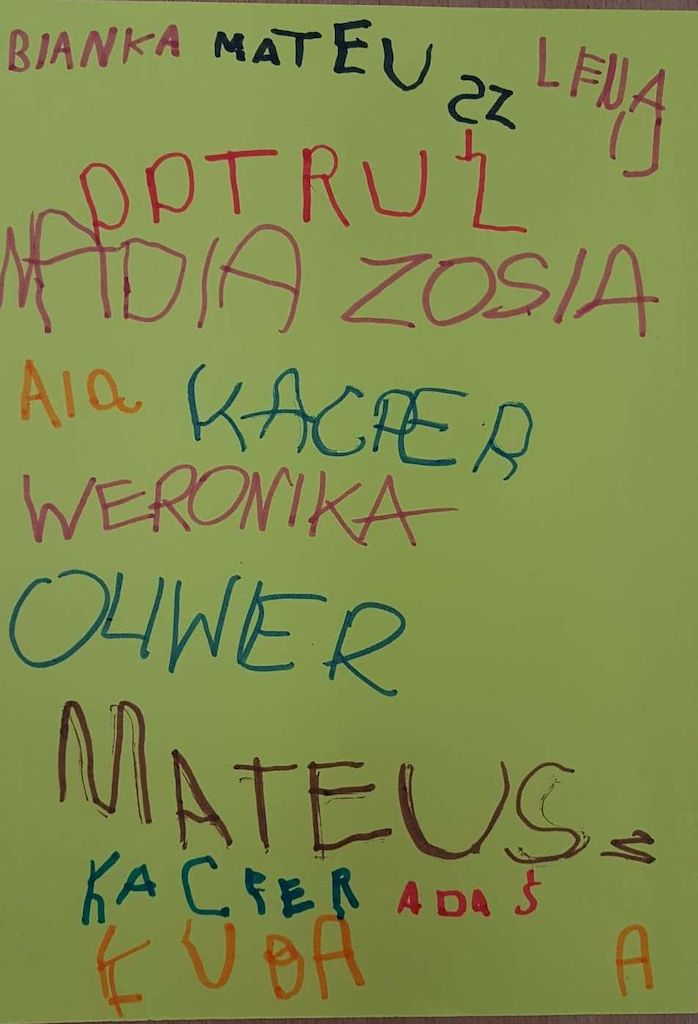 BIANKA MATEUSZ LENA
PDTRUŚ
NADIA ZOSIA
Ala KACPER
WERONIKA
OLIWER
MATEUSZ
KACPER ADAŚ
KUBA A